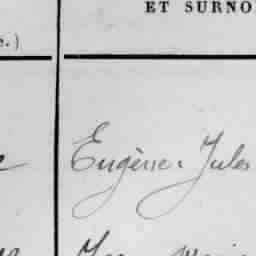 ET SURNO
s.)
Eugène Jules